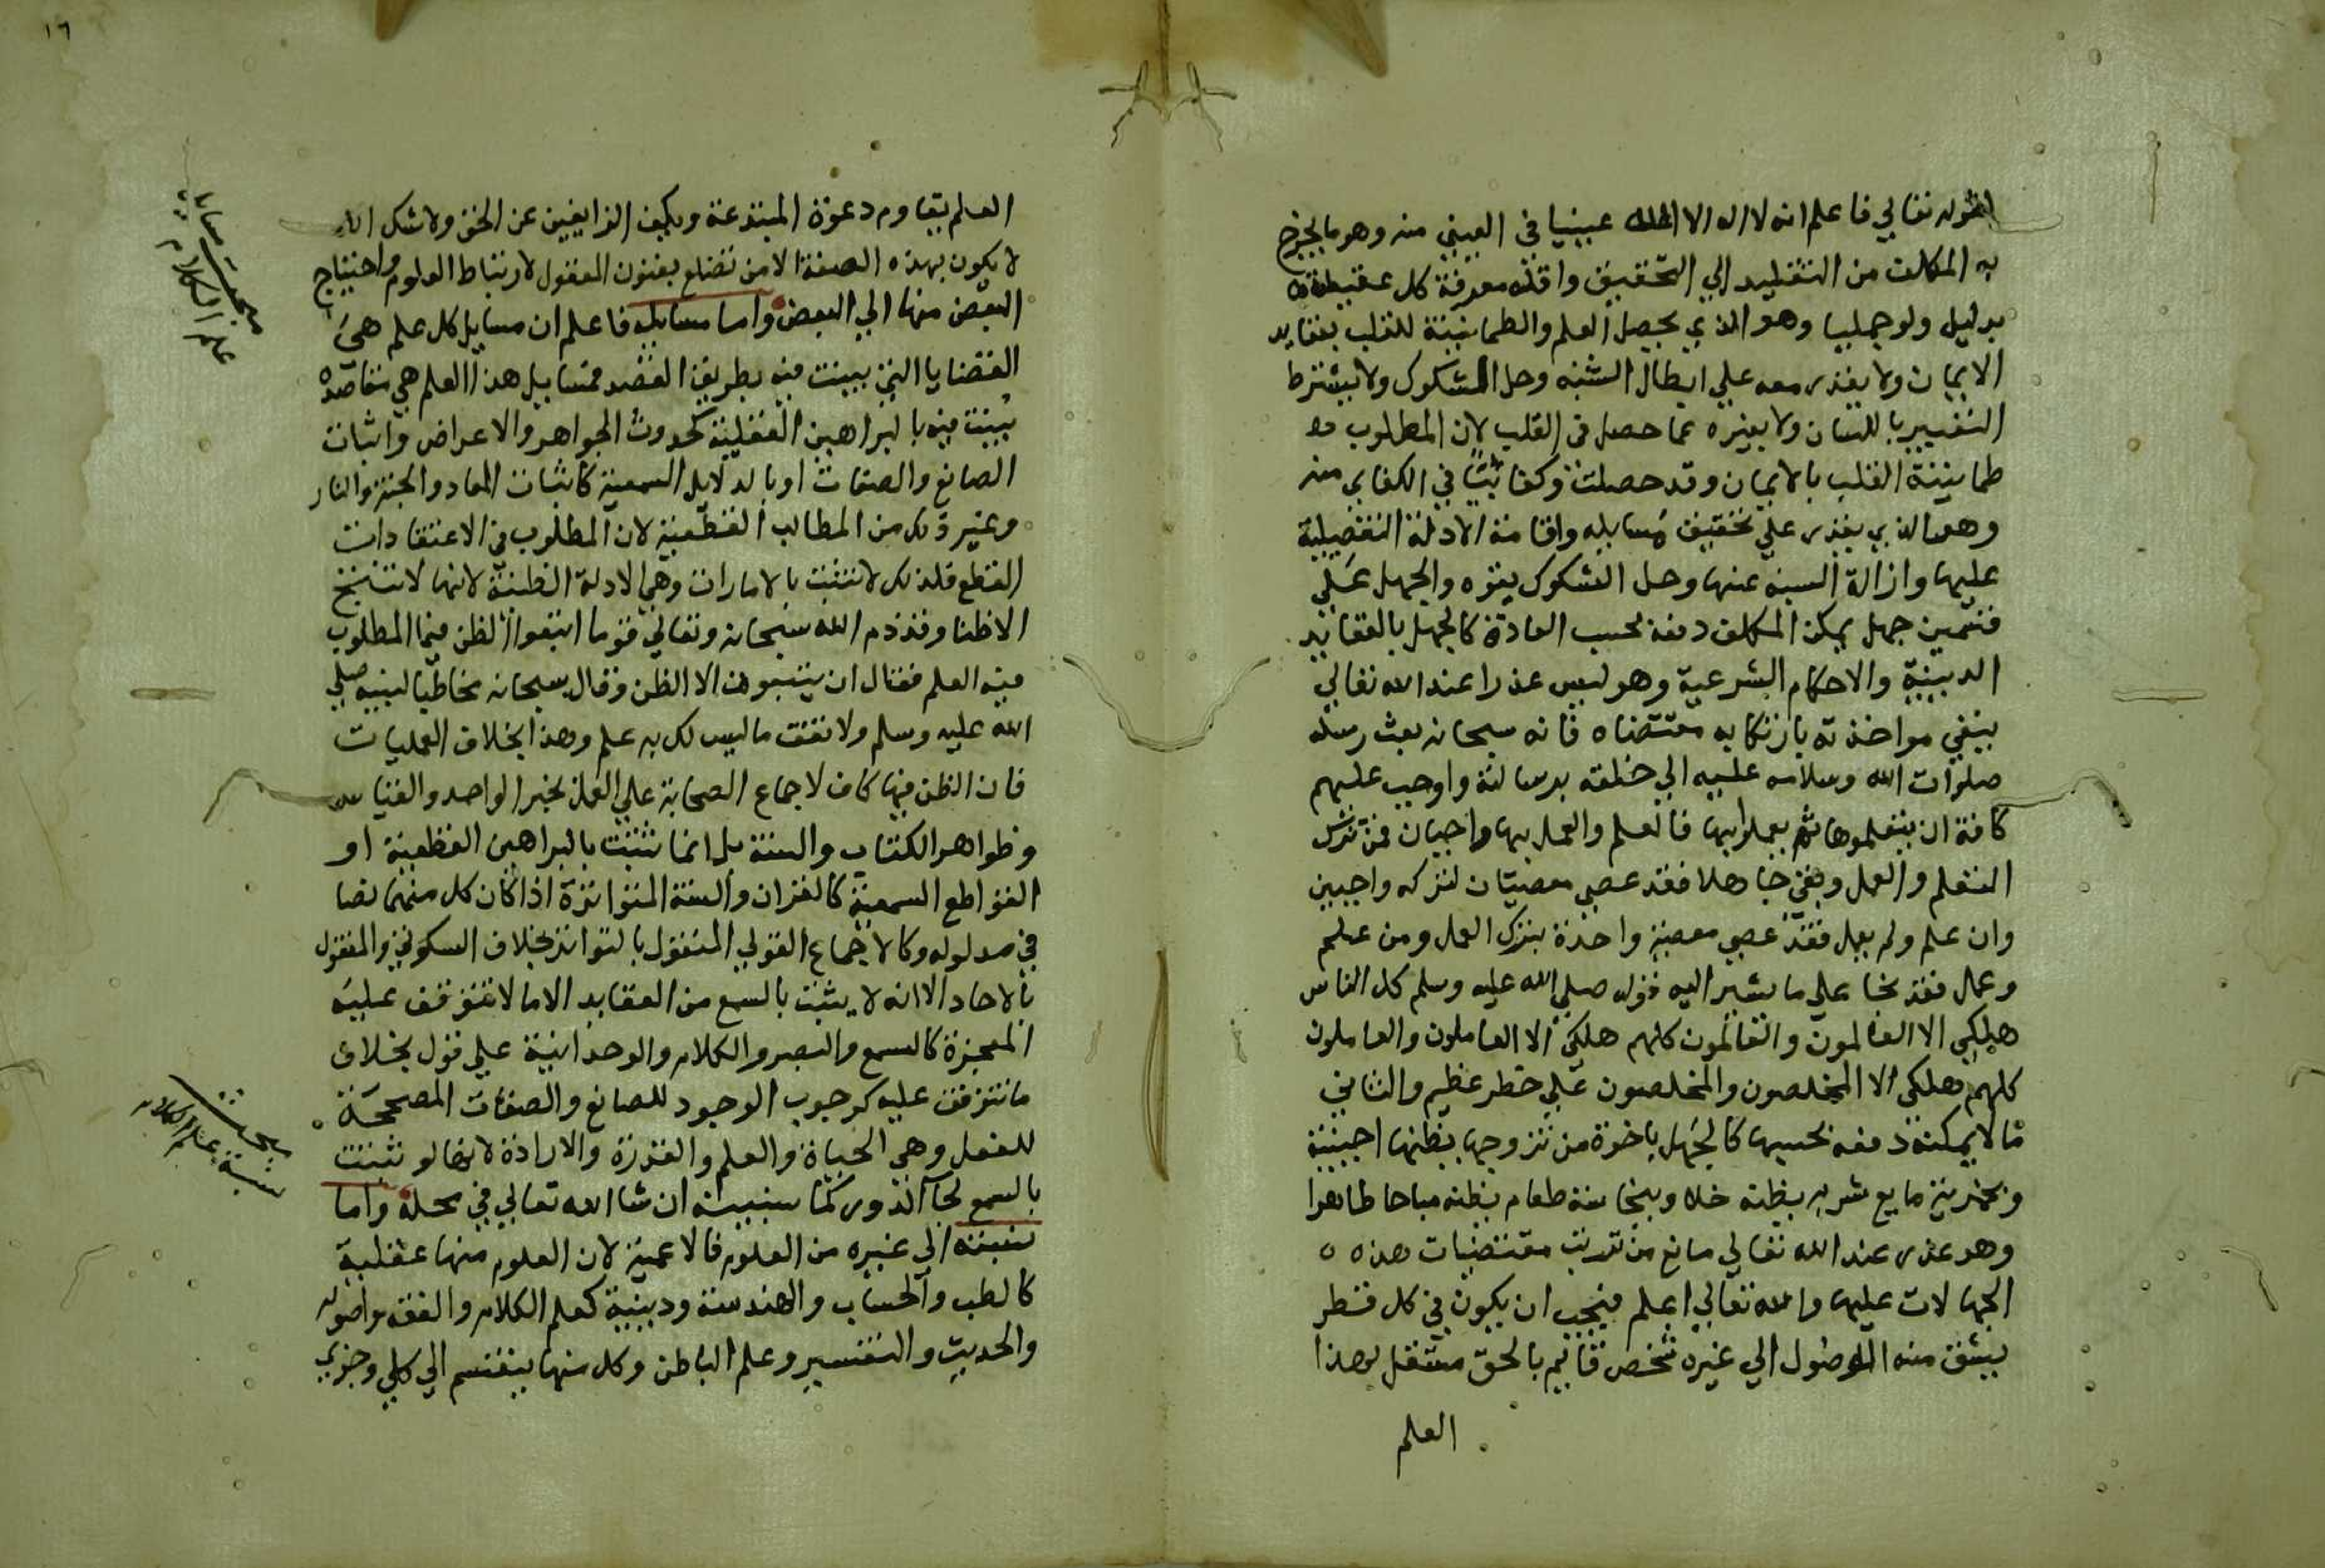 لقوله تعالي فاعلم انه لا اله الا الله عينيا في العيني منه وهو ما يخرج
به المكلف من التقليد الي التحقيق واقله معرفة كل عقيدة
بدليل ولو جمليا وهو الذي يحصل العلم والطمانينة للقلب بعقايد
الايمان ولا يقدر معه علي ابطال الشبه وحل الشكوك ولا يشترط
التعبير باللسان ولا بغيره عما حصل في القلب لان المطلوب
طمانينة القلب بالايمان وقد حصلت وكفايئا في الكفاي منه
وهو الذي يقدر علي تحقيق مسايله واقامة الادلة التفصيلية
عليها وازالة الشبه عنها وحل الشكوك بقوه والجهل علي
قسمين جهل يمكن المكلف دفعه بحسب العادة كالجهل بالعقايد
الدينية والاحكام الشرعية وهو ليس عذرا عند الله تعالي
ينفي مواخذته بارتكابه مقتضاه فانه سبحانه بعث رسله
صلوات الله وسلامه عليه الي خلقه برسالته واوجب عليهم
كافة ان يتعلموها ثم يعملوا بها فالعلم والعمل بها واجبان فمن ترك
التعلم والعمل وبقي جاهلا فقد عصي معصيتان لتركه واجبين
وان علم ولم يعمل فقد عصي معصية واحدة بترك العمل ومن علم
وعمل فقد نجا علي ما يشير اليه قوله صلي الله عليه وسلم كل الناس
هلكي الا العالمون والعالمون كلهم هلكي الا العاملون والعاملون
كلهم هلكي الا المخلصون والمخلصون علي خطر عظيم والثاني
ما لا يمكنه دفعه بحسبها كالجهل باخوة من تزوجها يظنها اجنبية
وبخمرية مايع شربه يظنه خلا وبنجاسة طعام يظنه مباحا طاهرا
وهو عذر عند الله تعالي مانع من ترتب مقتضيات هذه
الجهالات عليها والله تعالي اعلم فيجب ان يكون في كل قطر
يشق منه الوصول الي غيره شخص قايم بالحق مستقل بهذا
العلم
١٦
العلم يقاوم دعوة المبتدعة ويكيف الزايغين عن الحق ولا شك انه
لا يكون بهذه الصفة الا من تضلع بفنون المعقول لارتباط العلوم واحتياج
البعض منها الي البعض واما مسايله فاعلم ان مسايل كل علم هي
القضايا التي بينت فيه بطريق القصد فمسايل هذا العلم هي مقاصده
بينت فيه بالبراهين العقلية كحدوث الجواهر والاعراض واثبات
الصانع والصفات او بالدلايل السمعية كاثبات المعاد والجنة والنار
وغير ذلك من المطالب القطعية لان المطلوب في الاعتقادات
القطع فلذلك لا تثبت بالامارات وهي الادلة الظنية لانها لا تنتج
الا ظنا وقد ذم الله سبحانه وتعالي قوما اتبعوا الظن فيما المطلوب
فيه العلم فقال ان يتبعون الا الظن وقال سبحانه مخاطبا لنبيه صلي
الله عليه وسلم ولا تقف ما ليس لك به علم وهذا بخلاف العمليات
فان الظن فيها كاف لاجماع الصحابة علي العمل بخبر الواحد والقياس
وظواهر الكتاب والسنة بل انما تثبت بالبراهين القطعية او
القواطع السمعية كالقران والسنة المتواترة اذا كان كل منهما نصا
في مدلوله وكالاجماع القولي المنقول بالتواتر بخلاف السكوتي والمنقول
بالاحاد الا انه لا يثبت بالسمع من العقايد الا ما لا تتوقف عليه
المعجزة كالسمع والبصر والكلام والوحدانية علي قول بخلاف
ما تتوقف عليه كوجوب الوجود للصانع والصفات المصححة
للفعل وهي الحياة والعلم والقدرة والارادة لانها لو ثبتت
بالسمع لجا الدور كما سنبينه ان شا الله تعالي في محله واما
نسبته الي غيره من العلوم فالاعمية لان العلوم منها عقلية
كالطب والحساب والهندسة ودينية كعلم الكلام والفقه واصوله
والحديث والتفسير وعلم الباطن وكل منها ينقسم الي كلي وجزي
مبحث مسايل
علم الكلام
مبحث
نسبة علم الكلام